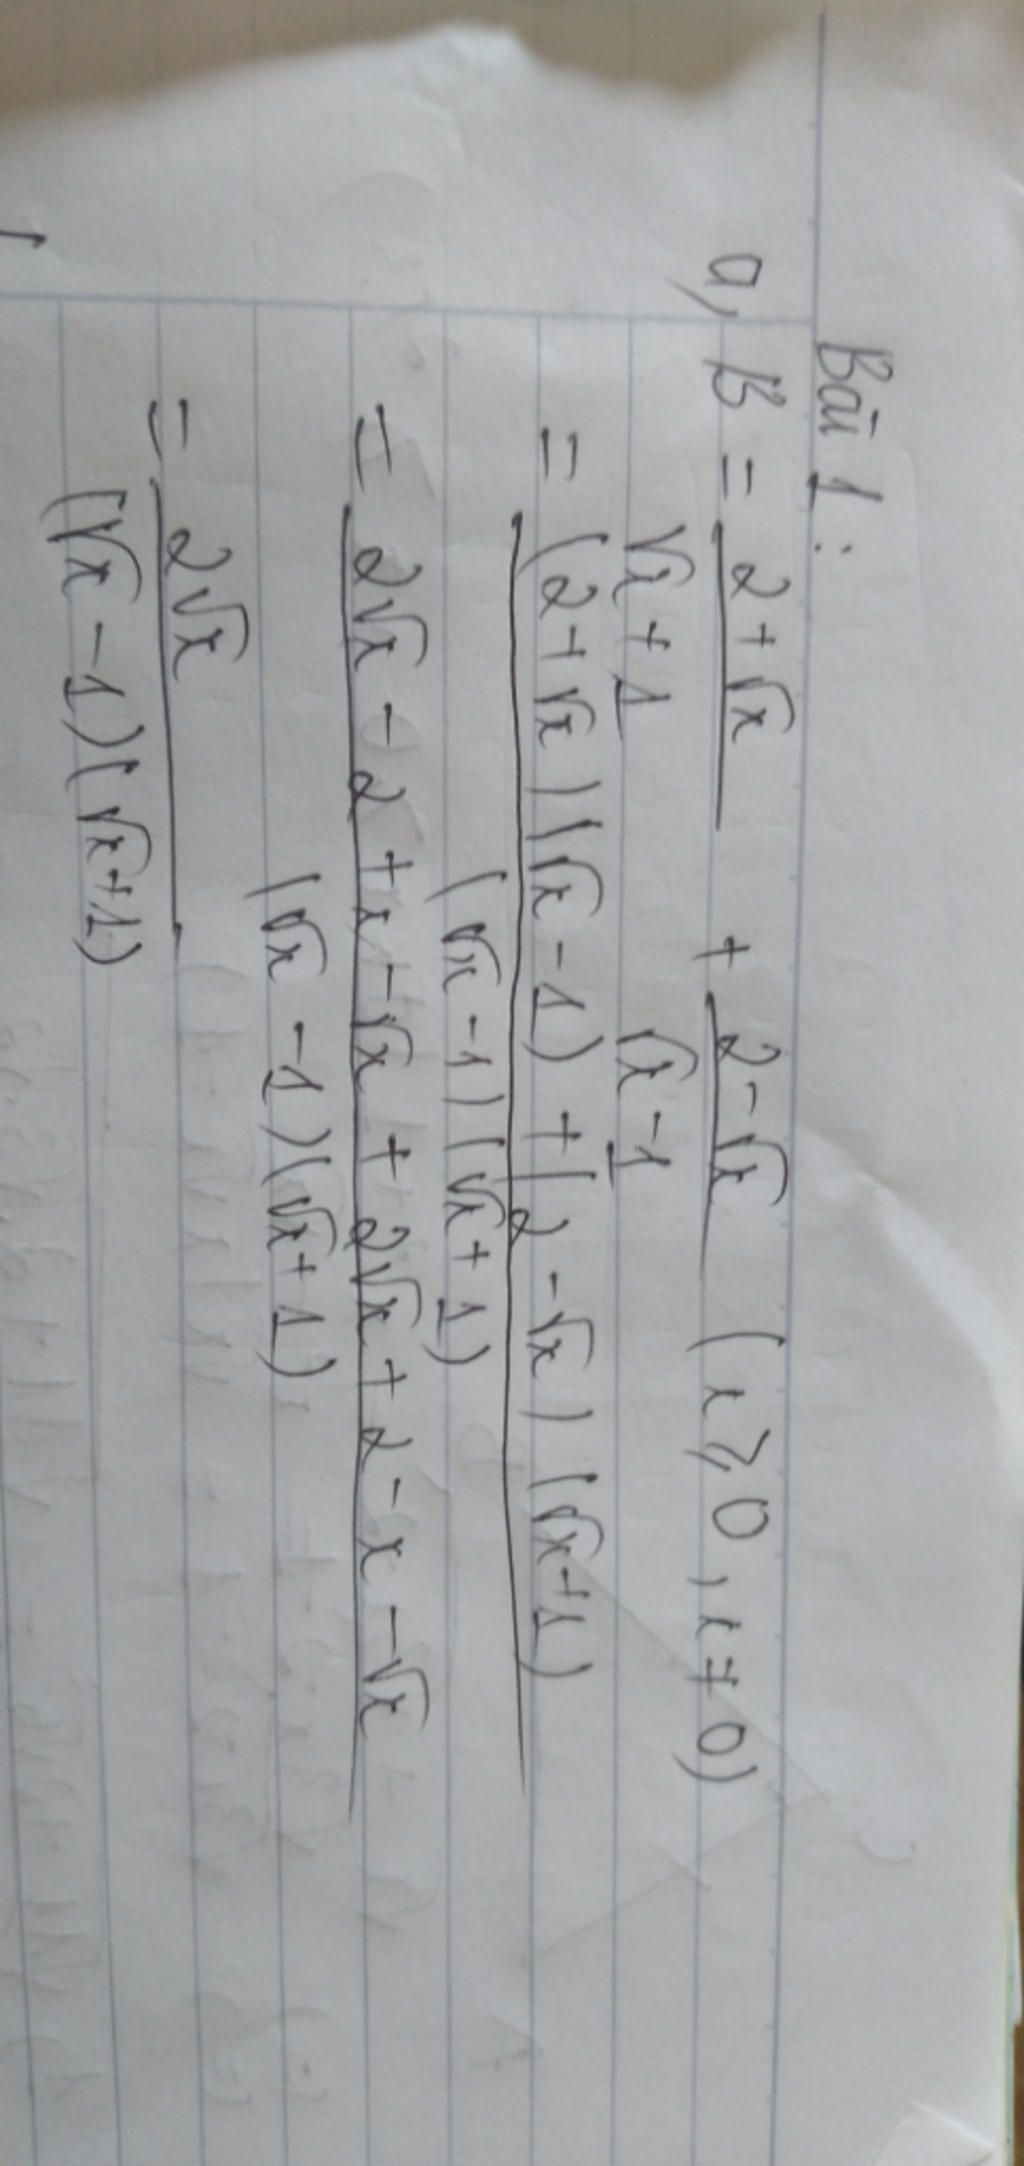 Bài 1 :
a, B = (2+√x)/(√x + 1) + (2-√x)/(√x - 1) (x ⩾ 0, x ≠ 0)
= ((2+√x)(√x - 1) + (2 - √x)(√x+1))/((√x - 1)(√x + 1))
= (2√x - 2 + x - √x + 2√x + 2 - x - √x)/((√x - 1)(√x + 1))
= (2√x)/((√x - 1)(√x+1))